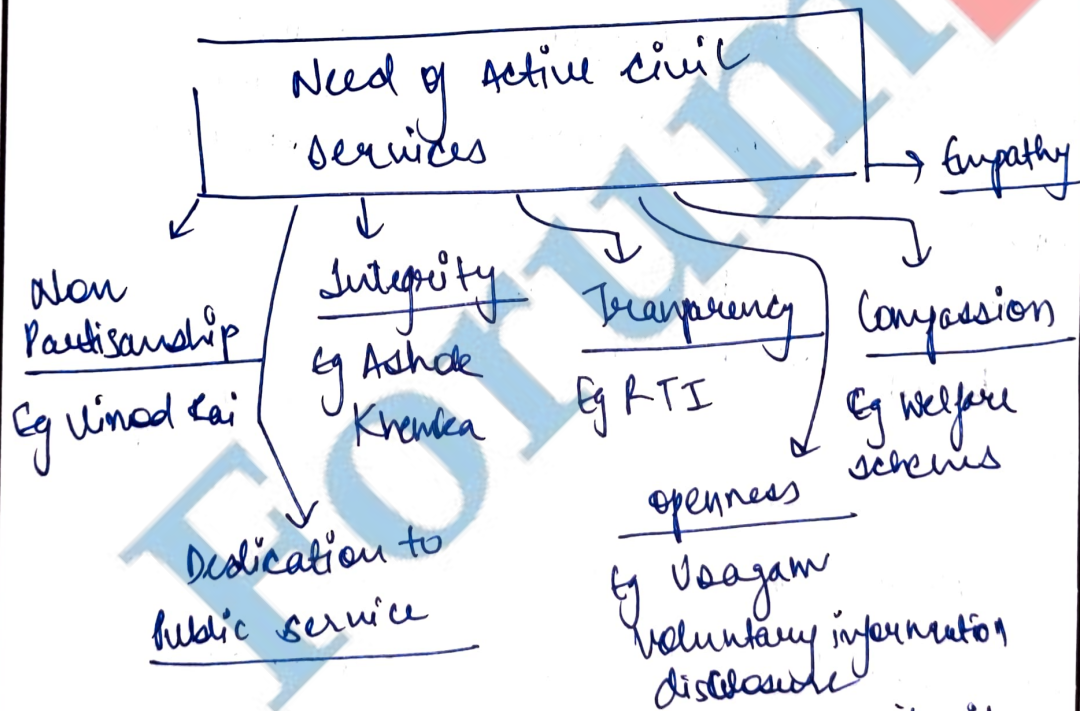 Need of Active civil
services
Empathy
Non
Partisanship
Eg Vinod Rai
Integrity
Eg Ashok
Khemka
Tranparency
Eg RTI
Compassion
Eg Welfare
schems
Dedication to
Public service
openness
Eg
voluntary information
disclosure
Forum